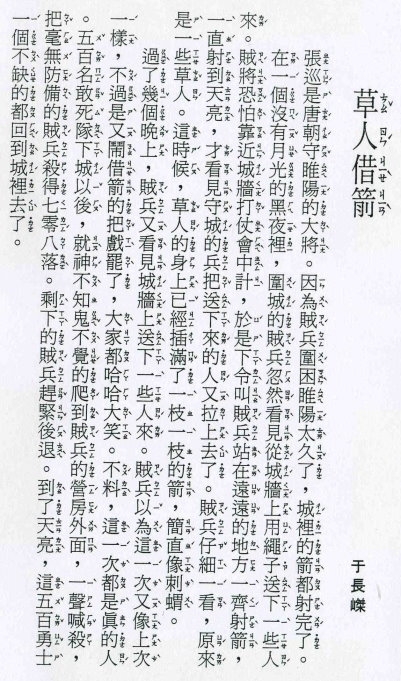 草人借箭
于長嶸
張巡是唐朝守睢陽的大將。因為賊兵圍困睢陽太久了，城裡的箭都射完了。
在一個沒有月光的黑夜裡，圍城的賊兵忽然看見從城牆上用繩子送下一些人
來。賊將恐怕靠近城牆打仗會中計，於是下令叫賊兵站在遠遠的地方一齊射箭，
一直射到天亮，才看見守城的兵把送下來的人又拉上去了。賊兵仔細一看，原來
是一些草人。這時候，草人的身上已經插滿了一枝一枝的箭，簡直像刺蝟。
過了幾個晚上，賊兵又看見城牆上送下一些人來。賊兵以為這一次又像上次
一樣，不過是又鬧借箭的把戲罷了，大家都哈哈大笑。不料，這一次都是眞的人
。五百名敢死隊下城以後，就神不知鬼不覺的爬到賊兵的營房外面，一聲喊殺，
把毫無防備的賊兵殺得七零八落。剩下的賊兵趕緊後退。到了天亮，這五百勇士
一個不缺的都回到城裡去了。